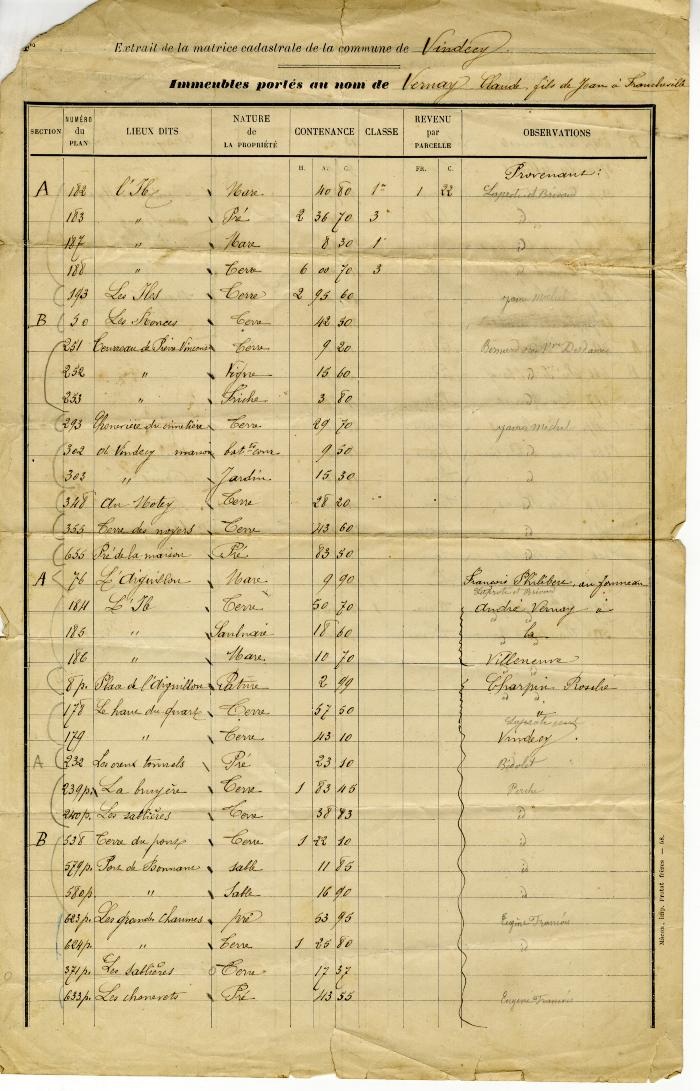 Extrait de la matrice cadastrale de la commune de Vindecy.
Immeubles portés au nom de Vernay Claude, fils de Jean à Francheville
SECTION NUMÉRO du PLAN LIEUX DITS NATURE de LA PROPRIÉTÉ CONTENANCE CLASSE REVENU par PARCELLE OBSERVATIONS
H. A. C. FR. C. Provenant :
A 182 L'Ile Mare 40 80 1re 1 22
183 " Pré 2 36 70 3 d
187 " Mare 8 30 1
188 " Terre 6 00 70 3 d
193 Les Iles Terre 2 95 60 Michel
B 50 Les Ronces Terre 42 50
251 de Pierre Terre 9 20
252 " Vigne 15 60 d
253 " Friche 3 80 d
293 Chenevière du cimetière Terre 29 70 Michel
302 à Vindecy maison batts cour 9 50
303 " Jardin 15 30
348 Au Motey Terre 28 20
355 Terre des noyers Terre 43 60 d
655 Pré de la maison Pré 83 50 d
A 76 L'Aiguillon Mare 9 90 François Philibert, au fourneau
184 L'Ile Terre 50 70 André Vernay à
185 " 18 60 la
186 " Mare 10 70 Villeneuve
8p. Place de l'Aiguillon Pature 2 99 Charpin Rosalie
178 Le haut du quart Terre 57 50 "
179 " Terre 43 10 Vindecy.
A 232 Les creux tonnels Pré 23 10
239p. La bruyère Terre 1 83 45 Perche
240p. Les sablières Terre 38 83 d
B 538 Terre du pont Terre 1 22 10 d
579p. Pont de Bonnant sable 11 85 d
580p. " Sable 16 90 d
623p. Les grands chaumes pré 53 95 Eugène
624p. " Terre 1 25 80 d
371p. Les sablières Terre 17 37
633p. Les chenevets Pré 43 55 Eugène
Mâcon, Imp. Protat frères — 58.